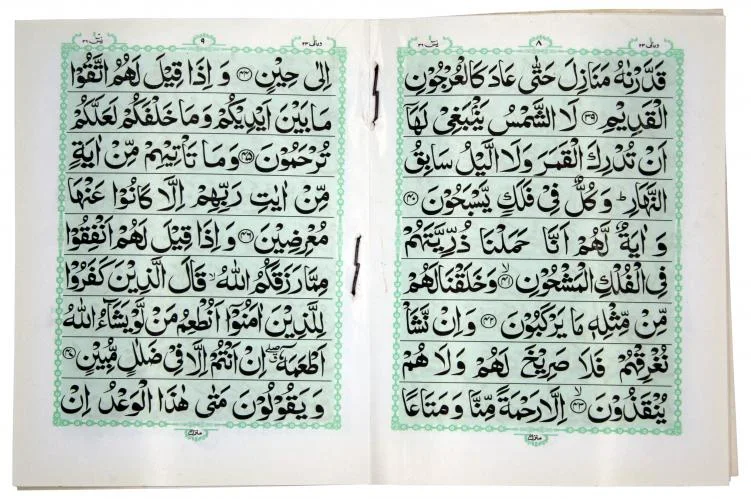 ومالی ۲۳
۸
یٰسٓ ۳۶
قَدَّرْنٰهُ مَنَازِلَ حَتّٰى عَادَ كَالْعُرْجُوْنِ
الْقَدِيْمِ ۝۳۹ لَا الشَّمْسُ يَنْۢبَغِيْ لَهَاۤ
اَنْ تُدْرِكَ الْقَمَرَ وَلَا الَّيْلُ سَابِقُ
النَّهَارِ ؕ وَكُلٌّ فِيْ فَلَكٍ يَّسْبَحُوْنَ ۝۴۰
وَاٰيَةٌ لَّهُمْ اَنَّا حَمَلْنَا ذُرِّيَّتَهُمْ
فِي الْفُلْكِ الْمَشْحُوْنِ ۙ۝۴۱ وَخَلَقْنَا لَهُمْ
مِّنْ مِّثْلِهٖ مَا يَرْكَبُوْنَ ۝۴۲ وَاِنْ نَّشَاْ
نُغْرِقْهُمْ فَلَا صَرِيْخَ لَهُمْ وَلَا هُمْ
يُنْقَذُوْنَ ۙ۝۴۳ اِلَّا رَحْمَةً مِّنَّا وَمَتَاعًا
منزل
ومالی ۲۳
۹
یٰسٓ ۳۶
اِلٰى حِيْنٍ ۝۴۴ وَاِذَا قِيْلَ لَهُمُ اتَّقُوْا
مَا بَيْنَ اَيْدِيْكُمْ وَمَا خَلْفَكُمْ لَعَلَّكُمْ
تُرْحَمُوْنَ ۝۴۵ وَمَا تَاْتِيْهِمْ مِّنْ اٰيَةٍ
مِّنْ اٰيٰتِ رَبِّهِمْ اِلَّا كَانُوْا عَنْهَا
مُعْرِضِيْنَ ۝۴۶ وَاِذَا قِيْلَ لَهُمْ اَنْفِقُوْا
مِمَّا رَزَقَكُمُ اللّٰهُ ۙ قَالَ الَّذِيْنَ كَفَرُوْا
لِلَّذِيْنَ اٰمَنُوْۤا اَنُطْعِمُ مَنْ لَّوْ يَشَآءُ اللّٰهُ
اَطْعَمَهٗۤ ۖ اِنْ اَنْتُمْ اِلَّا فِيْ ضَلٰلٍ مُّبِيْنٍ ۝۴۷
وَيَقُوْلُوْنَ مَتٰى هٰذَا الْوَعْدُ اِنْ
منزل